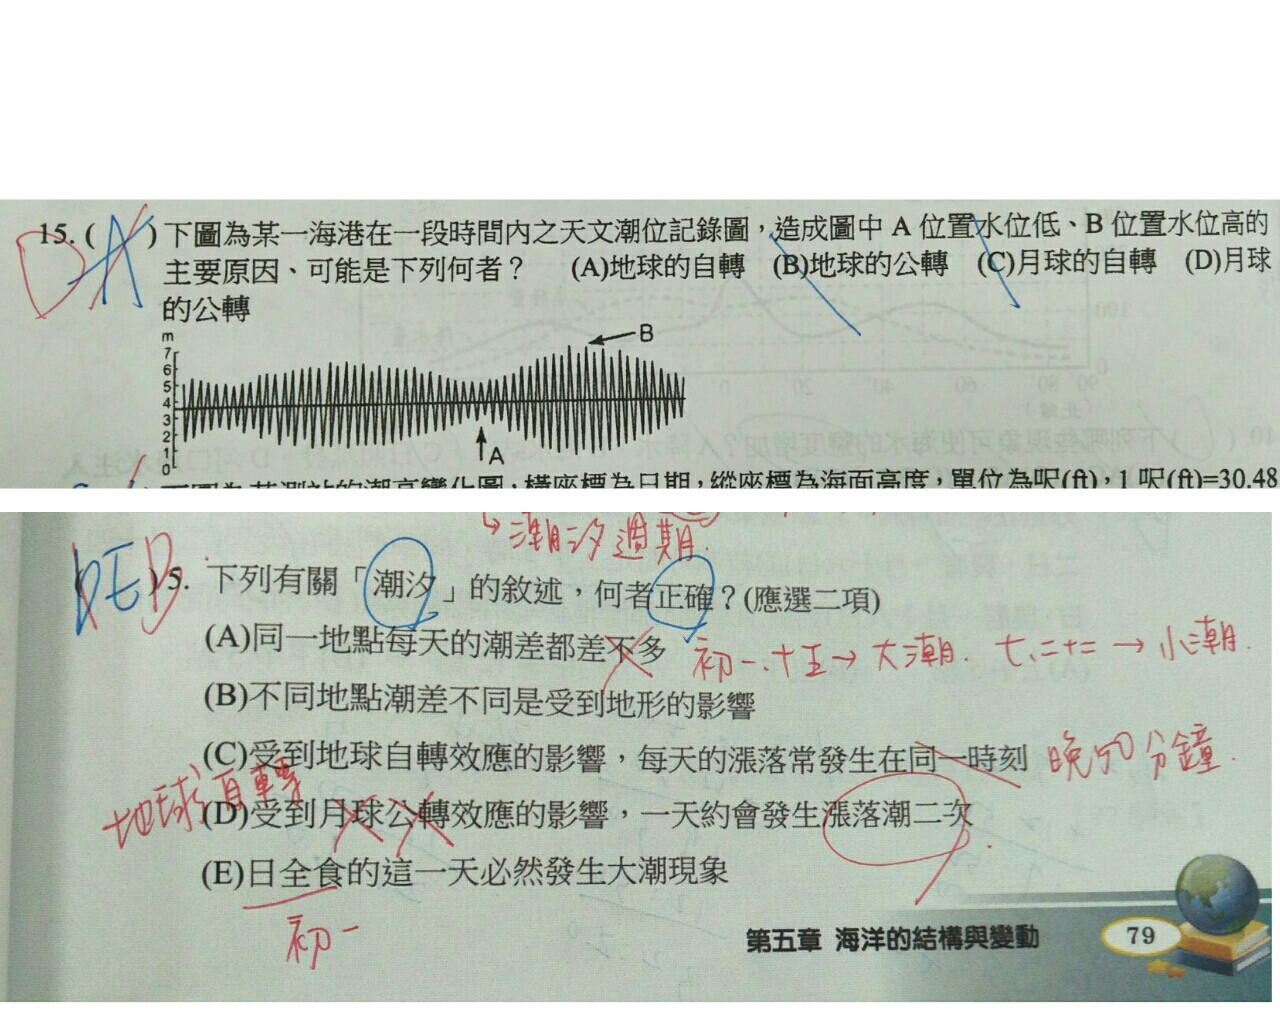 15. ( DA ) 下圖為某一海港在一段時間內之天文潮位記錄圖，造成圖中 A 位置水位低、B 位置水位高的
主要原因、可能是下列何者？ (A)地球的自轉 (B)地球的公轉 (C)月球的自轉 (D)月球
的公轉
m
7
6
5
4
3
2
1
0
B
A
下圖為某測站的潮高變化圖，橫座標為日期，縱座標為海面高度，單位為呎(ft)，1 呎(ft)=30.48
↳潮汐週期.
) 5. 下列有關「潮汐」的敘述，何者正確？(應選二項)
(A)同一地點每天的潮差都差不多 初一.十五→大潮. 七.二十二→小潮.
(B)不同地點潮差不同是受到地形的影響
(C)受到地球自轉效應的影響，每天的漲落常發生在同一時刻 晚50分鐘.
地球自轉
(D)受到月球公轉效應的影響，一天約會發生漲落潮二次
(E)日全食的這一天必然發生大潮現象
初一
第五章 海洋的結構與變動 79